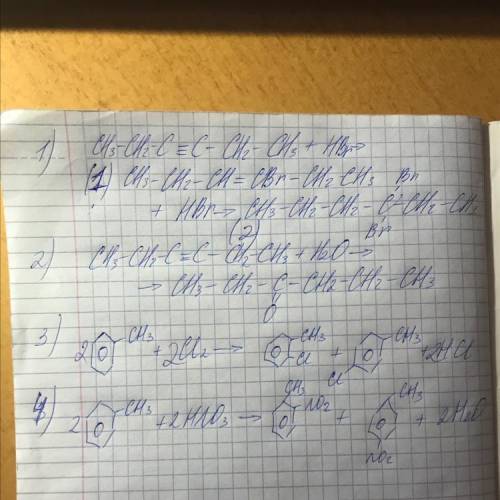 1) CH3-CH2-C≡C-CH2-CH3 + HBr→
(1) CH3-CH2-CH=CBr-CH2-CH3
Br
+ HBr→ CH3-CH2-CH2-C-CH2-CH3
(2) Br
2) CH3-CH2-C≡C-CH2-CH3 + H2O→
→ CH3-CH2-C-CH2-CH2-CH3
O
3) 2 CH3 + 2Cl2 → CH3 Cl + CH3 Cl + 2HCl
4) 2 CH3 + 2HNO3 → CH3 NO2 + CH3 NO2 + 2H2O